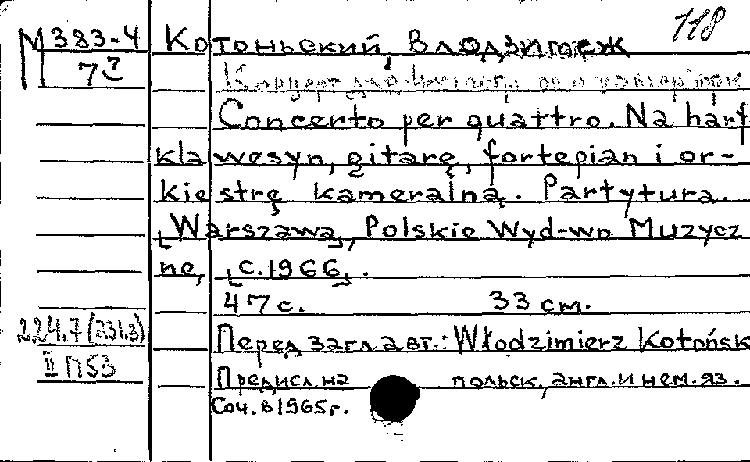 118
М383-4 Котоньский, Влодзимеж
7²
Концерт для
Concerto per quattro. Na harf
klawesyn, gitarę, fortepian i or-
kiestrę kameralną. Partytura.
[Warszawa], Polskie Wyd-wo Muzycz
ne, [c.1966].
47 с. 33 см.
224.7(231.3)
Перед загл. авт.: Włodzimierz Kotońsk
II П53
Предисл. на польск., англ. и нем. яз.
Соч. в 1965 г.